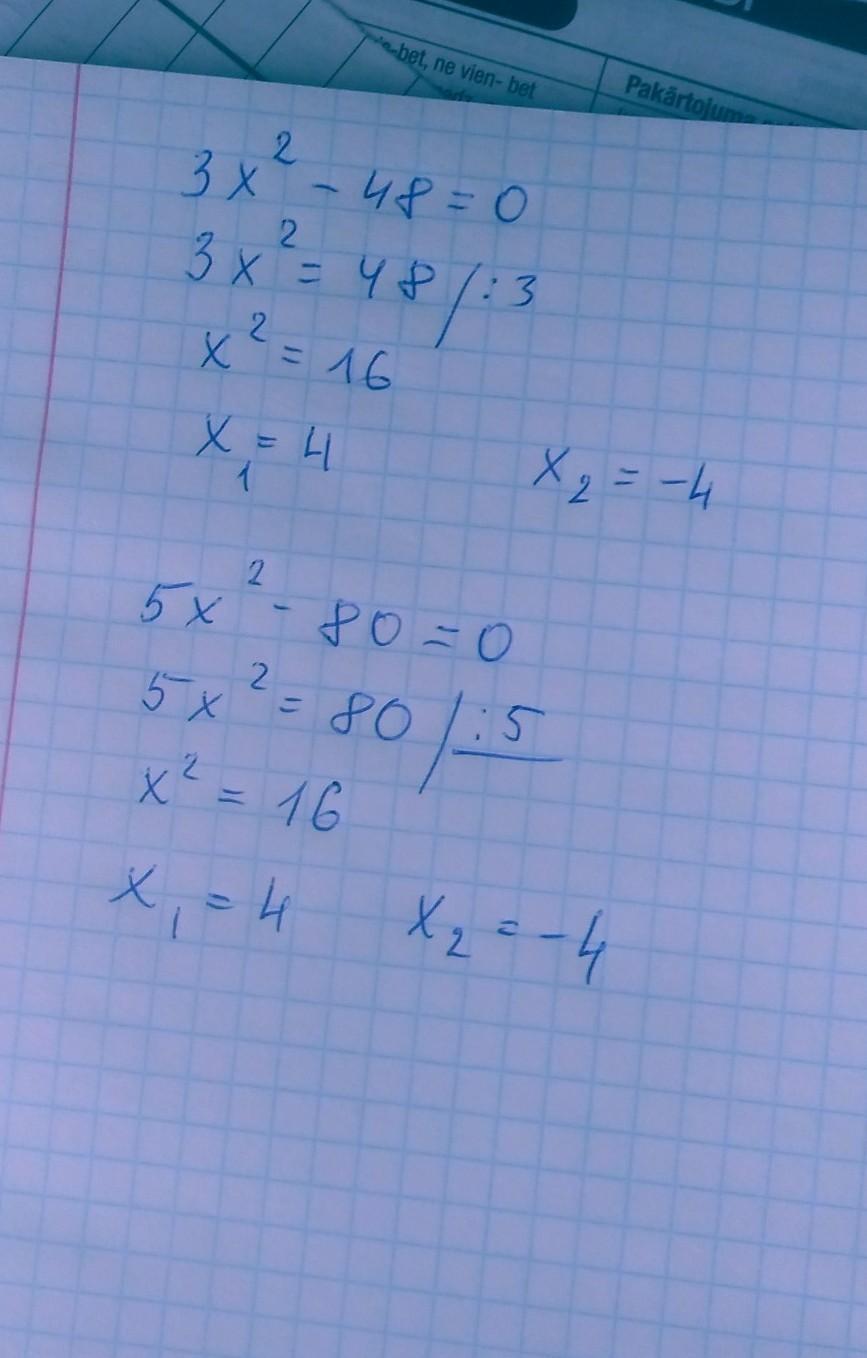 -bet, ne vien- bet
Pakārtojuma
3x² - 48 = 0
3x² = 48 / : 3
x² = 16
x₁ = 4 x₂ = -4
5x² - 80 = 0
5x² = 80 / : 5
x² = 16
x₁ = 4 x₂ = -4